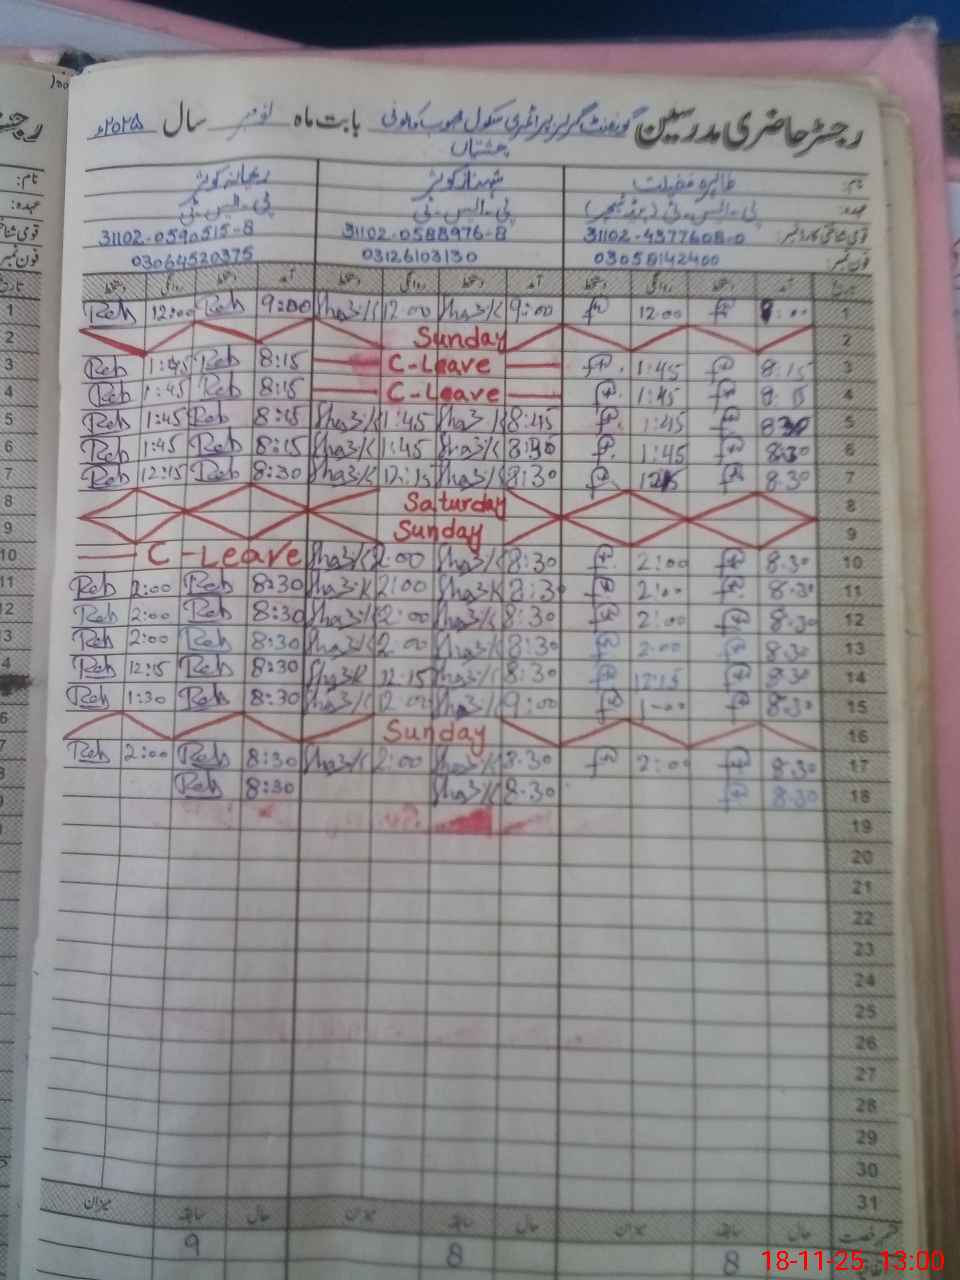 رجسٹر حاضری مدرسین گورنمنٹ گرلز پرائمری سکول محبوب کالونی بابت ماہ نومبر سال ۲۰۲۵ء
چشتیاں
نام: طاہرہ فضیلت شہناز کوثر ریحانہ کوثر
عہدہ: پی-ایس-ٹی (ہیڈ ٹیچر) پی-ایس-ٹی پی-ایس-ٹی
31102-4377608-0 31102-0588976-8 31102-0590515-8
فون نمبر: 03058142400 03126103130 03064520375
تاریخ آمد دستخط روانگی دستخط آمد دستخط روانگی دستخط آمد دستخط روانگی دستخط
Reh 12:00 Reh 9:00 Shaz/K 12:00 Shaz/K 9:00 12:00 1
Sunday 2
Reh 1:45 Reh 8:15 C-Leave 1:45 8:15 3
Reh 1:45 Reh 8:15 C-Leave 1:45 8:15 4
Reh 1:45 Reh Shaz/K 1:45 Shaz/K 8:45 1:45 5
Reh 1:45 Reh 8:15 Shaz/K 1:45 Shaz/K 1:45 8:30 6
Reh 12:15 Reh 8:30 Shaz/K 12:15 Shaz/K 8:30 8.30 7
Saturday 8
Sunday 9
C-Leave Shaz/K 2:00 Shaz/K 8:30 2:00 8.30 10
Reh 2:00 Reh 8:30 Shaz/K 2:00 Shaz/K 8:30 2:00 8.30 11
Reh 2:00 Reh 8:30 Shaz/K 2:00 Shaz/K 8:30 2:00 8.30 12
Reh 2:00 Reh 8:30 Shaz/K 2:00 Shaz/K 8:30 2:00 8.30 13
Reh 12:15 Reh 8:30 Shaz/K 12:15 Shaz/K 8:30 12:15 8.30 14
Reh 1:30 Reh 8:30 Shaz/K 12:00 Shaz/K 9:00 1:00 8.30 15
Sunday 16
Reh 2:00 Reh 8:30 Shaz/K 2:00 Shaz/K 8.30 2:00 8.30 17
Reh 8:30 Shaz/K 8.30 8.30 18
19
20
21
22
23
24
25
26
27
28
29
30
31
حال سابقہ میزان حال سابقہ میزان حال سابقہ میزان
8 8 9
18-11-25 13:00